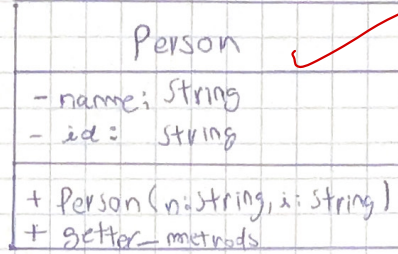 Person
- name: String
- id: String
+ Person(n:String, i:String)
+ getter_metods